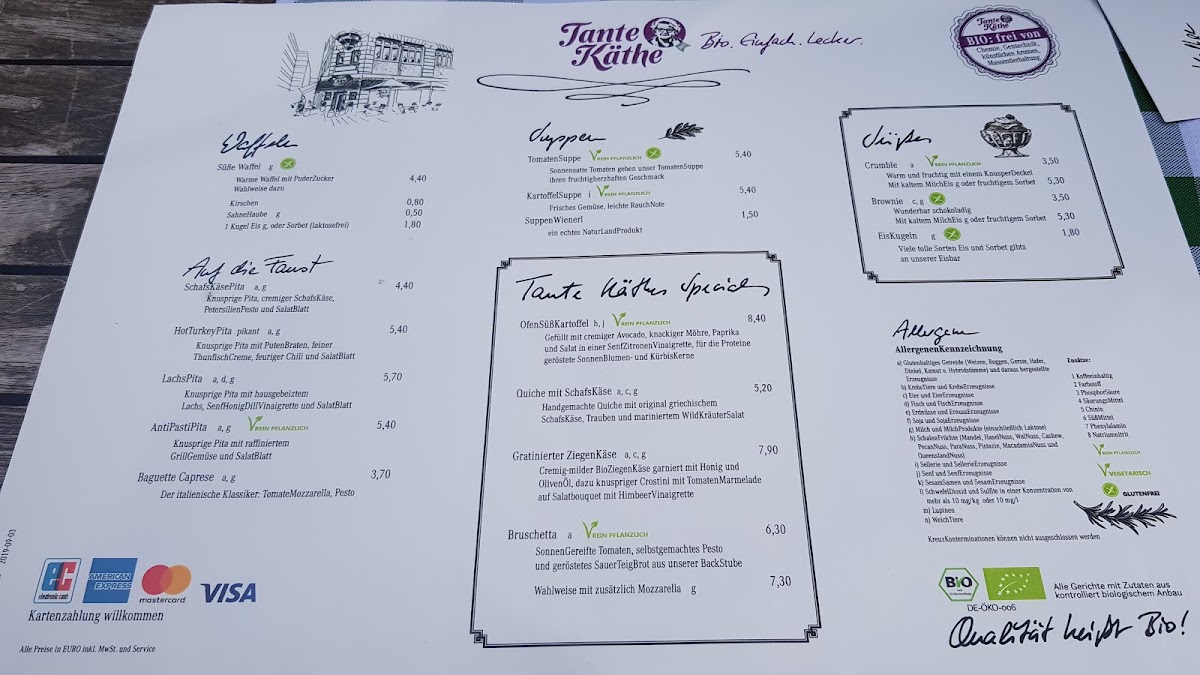 Tante
Käthe
Bio. Einfach. Lecker.
Tante
Käthe
BIO: frei von
Chemie, Gentechnik,
künstlichen Aromen,
Massentierhaltung
Waffeln
Süße Waffel g
Warme Waffel mit PuderZucker 4,40
Wahlweise dazu
Kirschen 0,80
SahneHaube g 0,50
1 Kugel Eis g, oder Sorbet (laktosefrei) 1,80
Auf die Faust
SchafsKäsePita a, g 4,40
Knusprige Pita, cremiger SchafsKäse,
PetersilienPesto und SalatBlatt
HotTurkeyPita pikant a, g 5,40
Knusprige Pita mit PutenBraten, feiner
ThunfischCreme, feuriger Chili und SalatBlatt
LachsPita a, d, g 5,70
Knusprige Pita mit hausgebeiztem
Lachs, SenfHonigDillVinaigrette und SalatBlatt
AntiPastiPita a, g REIN PFLANZLICH 5,40
Knusprige Pita mit raffiniertem
GrillGemüse und SalatBlatt
Baguette Caprese a, g 3,70
Der italienische Klassiker: TomateMozzarella, Pesto
Suppen
TomatenSuppe REIN PFLANZLICH 5,40
Sonnensatte Tomaten geben unser TomatenSuppe
ihren fruchtigherzhaften Geschmack
KartoffelSuppe i REIN PFLANZLICH 5,40
Frisches Gemüse, leichte RauchNote
SuppenWienerl 1,50
ein echtes NaturLandProdukt
Tante Käthes Specials
OfenSüßKartoffel h, j REIN PFLANZLICH 8,40
Gefüllt mit cremiger Avocado, knackiger Möhre, Paprika
und Salat in einer SenfZitronenVinaigrette, für die Proteine
geröstete SonnenBlumen- und KürbisKerne
Quiche mit SchafsKäse a, c, g 5,20
Handgemachte Quiche mit original griechischem
SchafsKäse, Trauben und mariniertem WildKräuterSalat
Gratinierter ZiegenKäse a, c, g 7,90
Cremig-milder BioZiegenKäse garniert mit Honig und
OlivenÖl, dazu knuspriger Crostini mit TomatenMarmelade
auf Salatbouquet mit HimbeerVinaigrette
Bruschetta a REIN PFLANZLICH 6,30
SonnenGereifte Tomaten, selbstgemachtes Pesto
und geröstetes SauerTeigBrot aus unserer BackStube
Wahlweise mit zusätzlich Mozzarella g 7,30
Süßes
Crumble a REIN PFLANZLICH 3,50
Warm und fruchtig mit einem KnusperDeckel
Mit kaltem MilchEis g oder fruchtigem Sorbet 5,30
Brownie c, g 3,50
Wunderbar schokoladig
Mit kaltem MilchEis g oder fruchtigem Sorbet 5,30
EisKugeln g 1,80
Viele tolle Sorten Eis und Sorbet gibts
an unserer Eisbar
Allergene
AllergenenKennzeichnung
a) Glutenhaltiges Getreide (Weizen, Roggen, Gerste, Hafer,
Dinkel, Kamut o. Hybridstämme) und daraus hergestellte
Erzeugnisse
b) KrebsTiere und KrebsErzeugnisse
c) Eier und EierErzeugnisse
d) Fisch und FischErzeugnisse
e) Erdnüsse und ErnussErzeugnisse
f) Soja und SojaErzeugnisse
g) Milch und MilchProdukte (einschließlich Laktose)
h) SchalenFrüchte (Mandel, HaselNuss, WalNuss, Cashew,
PecanNuss, ParaNuss, Pistazie, MacadamiaNuss und
QueenslandNuss)
i) Sellerie und SellerieErzeugnisse
j) Senf und SenfErzeugnisse
k) SesamSamen und SesamErzeugnisse
l) SchwefelDioxid und Sulfite in einer Konzentration von
mehr als 10 mg/kg oder 10 mg/l
m) Lupinen
n) WeichTiere
Zusätze:
1 Koffeeinhaltig
2 Farbstoff
3 PhosphorSäure
4 SäurungsMittel
5 Chinin
6 SüßMittel
7 Phenylalamin
8 Natriumnitrit
REIN PFLANZLICH
VEGETARISCH
GLUTENFREI
KreuzKonterminationen können nicht ausgeschlossen werden
BIO
DE-ÖKO-006
Alle Gerichte mit Zutaten aus
kontrolliert biologischem Anbau
Qualität heißt Bio!
2019-09-03
ec
electronic cash
AMERICAN
EXPRESS
mastercard
VISA
Kartenzahlung willkommen
Alle Preise in EURO inkl. MwSt. und Service